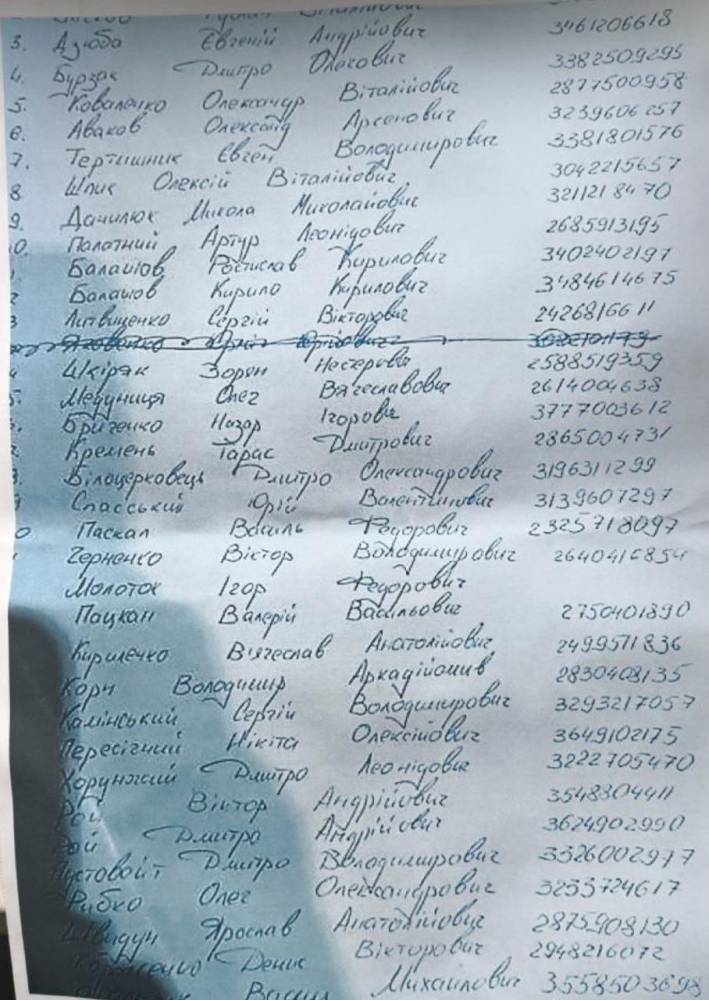 3461206618
3. Дзюба Євгеній Андрійович 3382509295
4. Бурзак Дмитро Олегович 2877500958
5. Коваленко Олександр Віталійович 3239606257
6. Аваков Олександ Арсенович 3381801576
7. Тертишник Євген Володимирович 3042215657
8 Шпик Олексій Віталійович 321121 8470
9. Данилюк Микола Миколайович 2685913195
0. Палатний Артур Леонідович 3402402197
Балашов Ростислав Кирилович 3484614675
Балашов Кирило Кирилович
3 Литвищенко Сергій Вікторович 2426816611
4 Шкіряк Зорян Нестерович 2588519359
5. Медуниця Олег Вячеславович 2614004638
Бриченко Назар Ігорович 3777003612
Кремень Тарас Дмитрович 2865004731
Білоцерковець Дмитро Олександрович 3196311299
9 Спасський Юрій Валентинович 3139607297
0 Паскал Василь Федорович 2325718097
Черненко Віктор Володимирович 2640416854
Молоток Ігор Федорович
Пацкан Валерій Васильович 2750401890
Кириленко Вячеслав Анатолійович 2499571836
Корн Володимир Аркадійович 2830408135
Камінський Сергій Володимирович 3293217057
Пересічний Нікіта Олексійович 3649102175
Хорунжий Дмитро Леонідович 3222705470
Рой Віктор Андрійович 3548304411
Рой Дмитро Андрійович 3624902990
Пустовойт Дмитро Володимирович 3326002977
Рибко Олег Олександрович 3253724617
Швидун Ярослав Анатолійович 2875908130
Денис Вікторович 2948216072
Васил Михайлович 3558503698